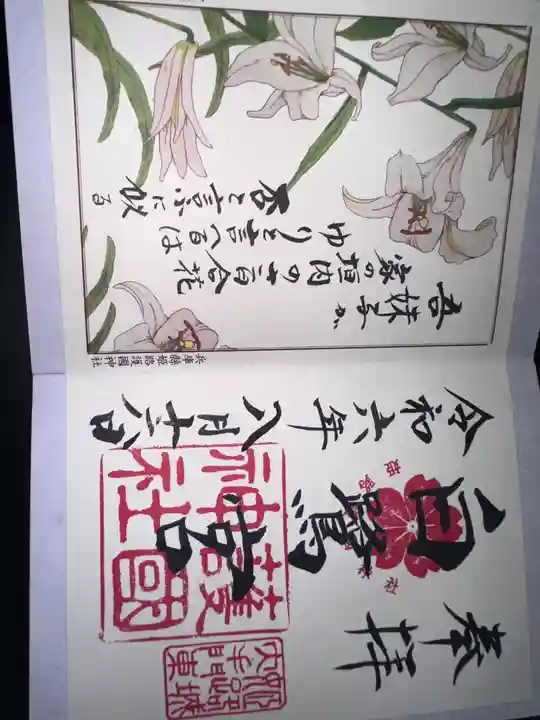 吾妹子が
家の垣内のさ百合花
ゆりと言へるは
否と言ふに似る
兵庫縣姫路護國神社
奉拝
白鷺宮
令和六年八月十六日
護國
神社
姫路城
大手門東